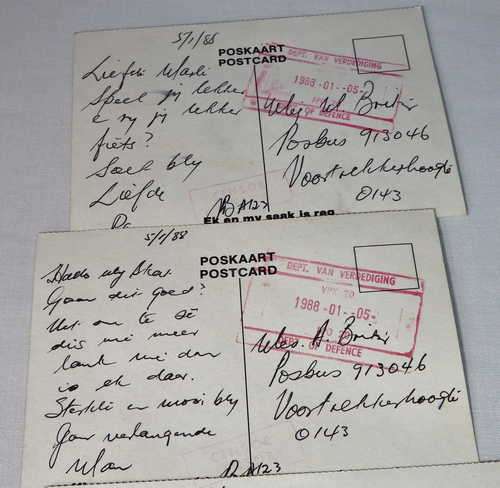 5/1/88
POSKAART
POSTCARD
DEPT. VAN VERDEDIGING
1988 -01- -05-
OF DEFENCE
Liefste
Speel jy lekker
e ry jy lekker
fiets?
Soet bly
Liefde
Posbus 913046
Voortrekkerhoogte
0143
A123
Ek en my saak is reg
5/1/88
POSKAART
POSTCARD
DEPT. VAN VERDEDIGING
1988 -01- -05-
DEPT OF DEFENCE
Hallo my Skat.
Gaan dit goed?
Net om te sê
dis nie meer
lank nie dan
is ek daar.
Sterkte en mooi bly
Jou verlangende
Man
Posbus 913046
Voortrekkerhoogte
0143
A123